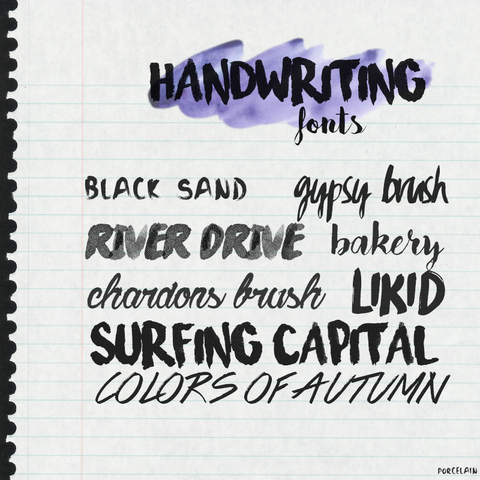 HANDWRITING
fonts
BLACK SAND gypsy brush
RIVER DRIVE bakery
chardons brush LIKID
SURFING CAPITAL
COLORS OF AUTUMN
PORCELAIN